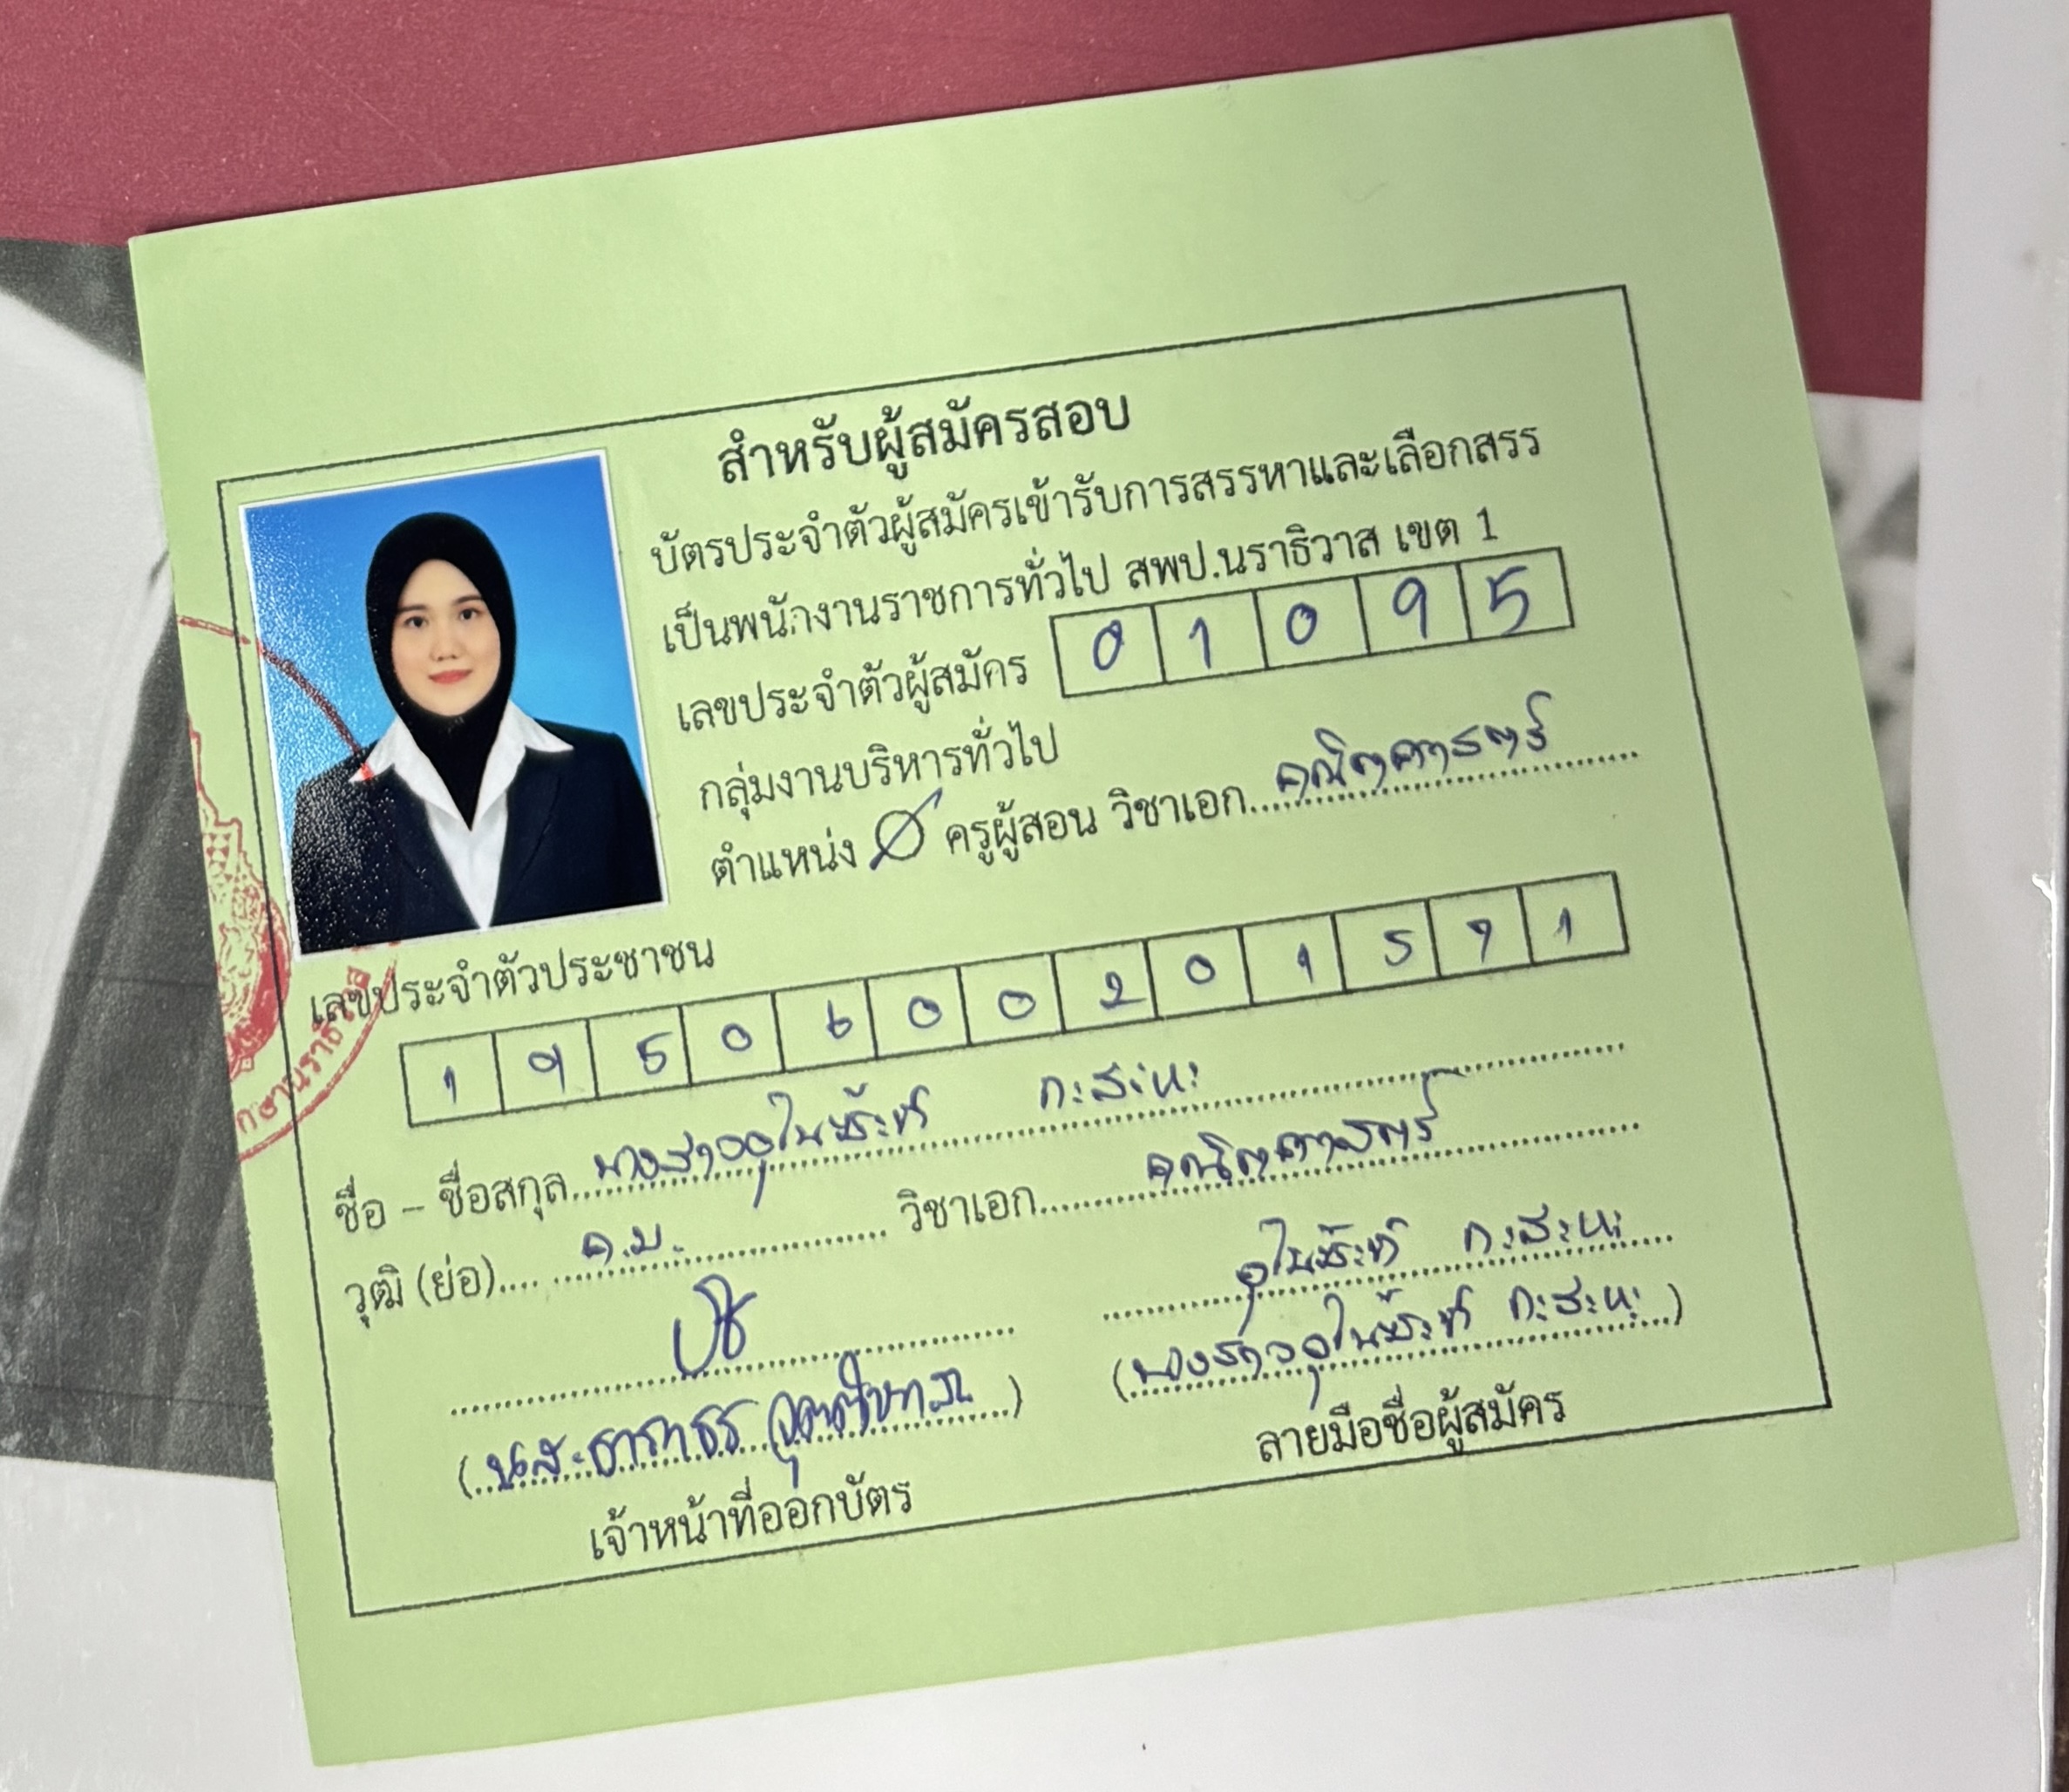 สำหรับผู้สมัครสอบ
บัตรประจำตัวผู้สมัครเข้ารับการสรรหาและเลือกสรร
เป็นพนักงานราชการทั่วไป สพป.นราธิวาส เขต 1
เลขประจำตัวผู้สมัคร 0 1 0 9 5
กลุ่มงานบริหารทั่วไป
ตำแหน่ง ครูผู้สอน วิชาเอก คณิตศาสตร์
เลขประจำตัวประชาชน
1 9 5 0 6 0 0 2 0 1 5 9 1
ชื่อ – ชื่อสกุล นางสาว กะสะหะ
วุฒิ (ย่อ) ค.บ. วิชาเอก คณิตศาสตร์
กะสะหะ
(นางสาว กะสะหะ)
ลายมือชื่อผู้สมัคร
เจ้าหน้าที่ออกบัตร